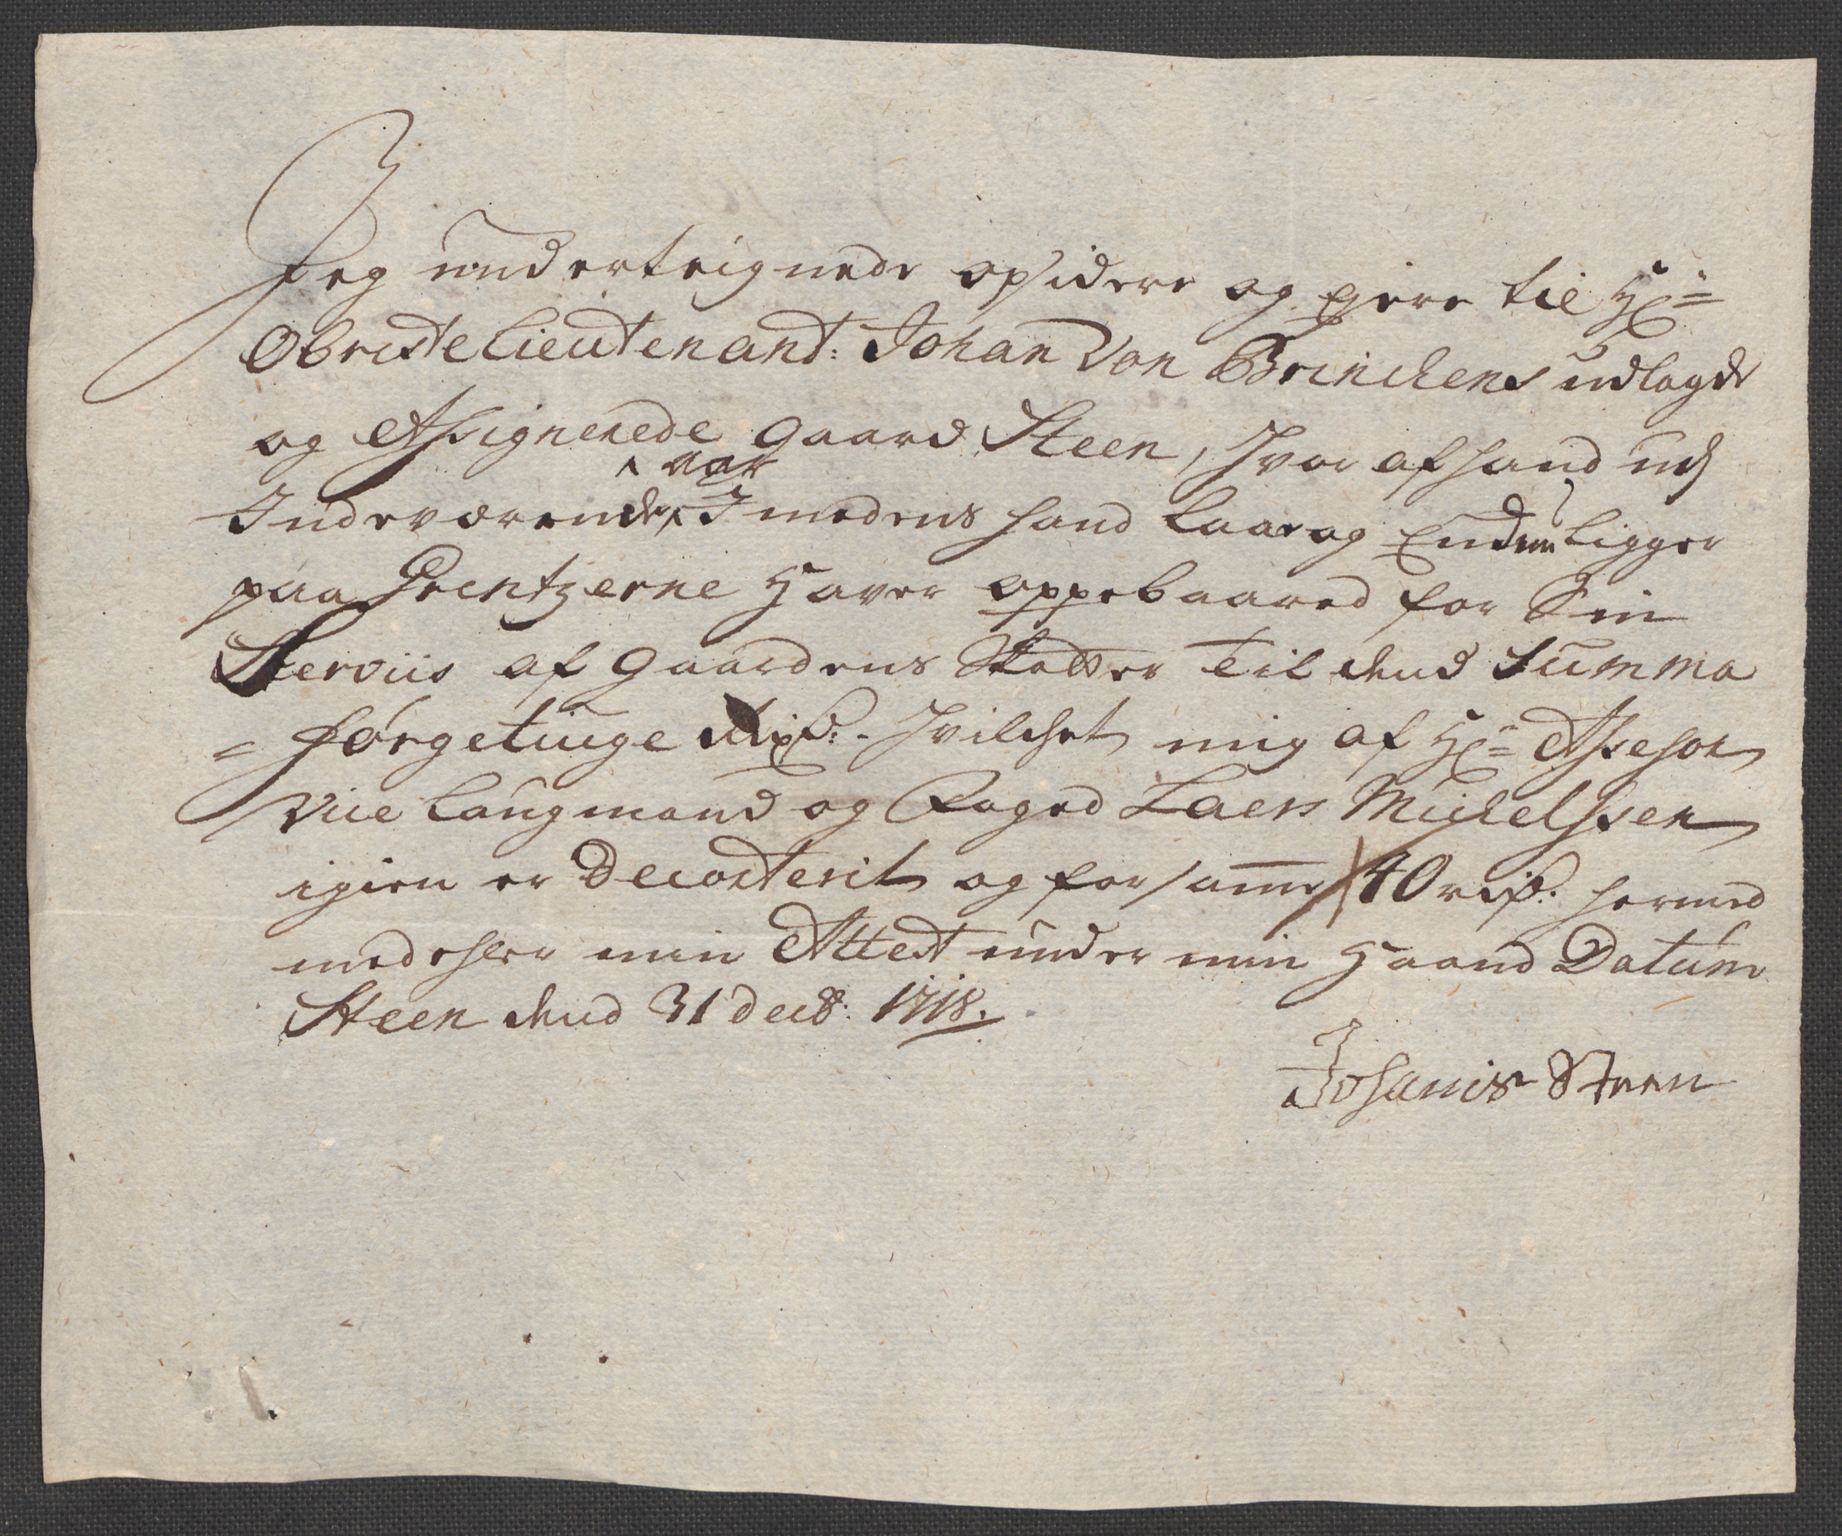 Jeg underteignede opsidere og ejere til Hr:
Obriste Lieutenant: Johan Von Brinchens udlagde
og Assignerede gaard Steen, hvor af hand udj
Indeværende ^ aar Imedens hand laae og Endnu ligger
paa Grentzerne haver oppebaared for Sin
Serviis af gaardens Skatter til dend Summa
= førgetiuge Rixdr:- hvilchet mig af Hr: Assessor
Vice laugmand og Foged Laers Michelssen
igien er Decorterit og for samme 40 rdr: hermed
medehler min Attest under min Haand Datum
Steen dend 31 decb: 1718.
Johanis Steen